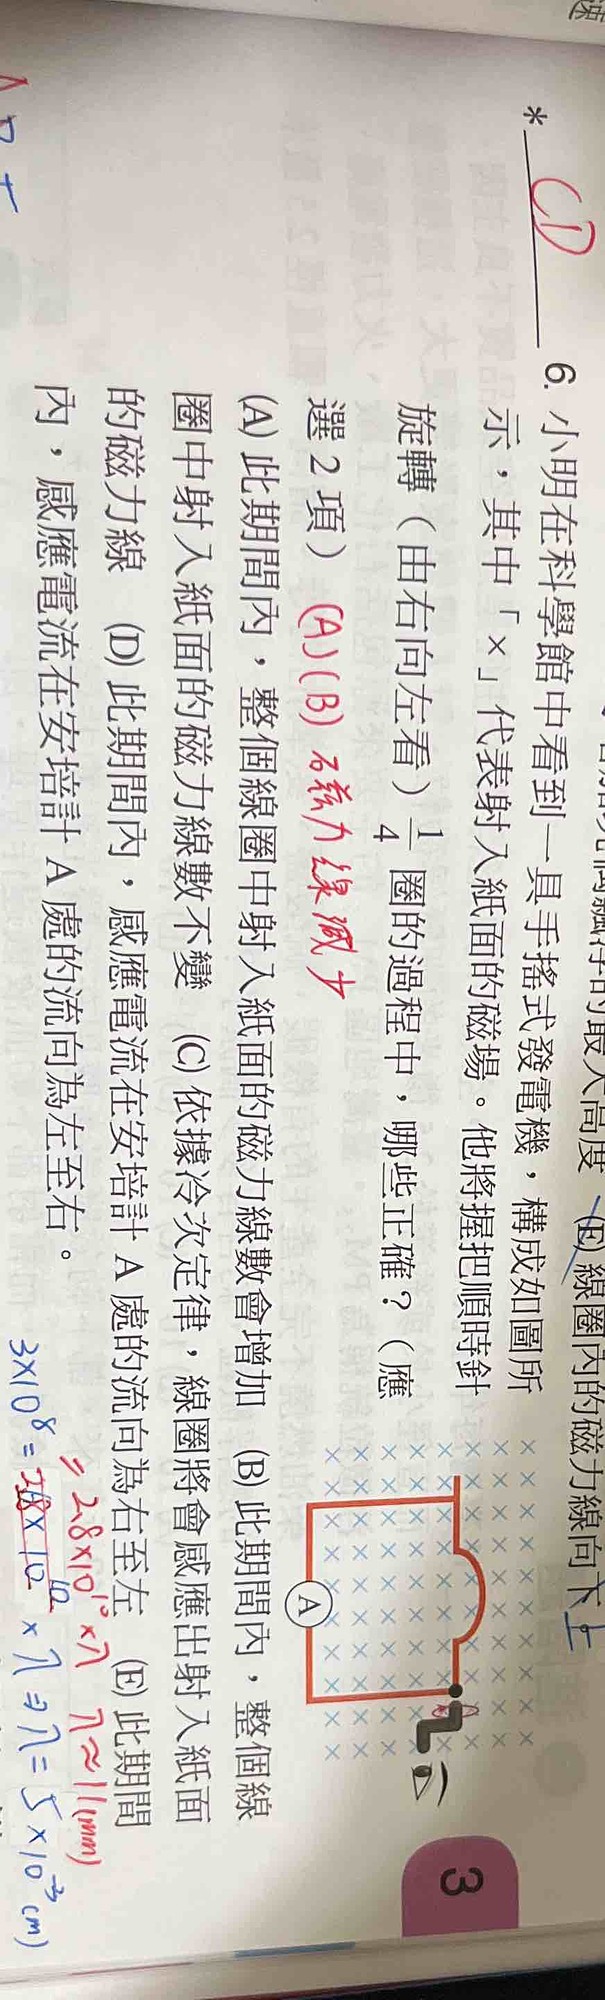 速
(E) 線圈內的磁力線向下上
* CD 6. 小明在科學館中看到一具手搖式發電機，構成如圖所
示，其中「×」代表射入紙面的磁場。他將握把順時針
旋轉（由右向左看）1/4 圈的過程中，哪些正確？（應
選 2 項） (A)(B) 磁力線減少
(A) 此期間內，整個線圈中射入紙面的磁力線數會增加 (B) 此期間內，整個線
圈中射入紙面的磁力線數不變 (C) 依據冷次定律，線圈將會感應出射入紙面
的磁力線 (D) 此期間內，感應電流在安培計 A 處的流向為右至左 (E) 此期間
內，感應電流在安培計 A 處的流向為左至右。
A
3
= 2.8×10¹⁰×λ λ≈11(mm)
3×10⁸ = × λ ⇒ λ = 5×10⁻³ cm)